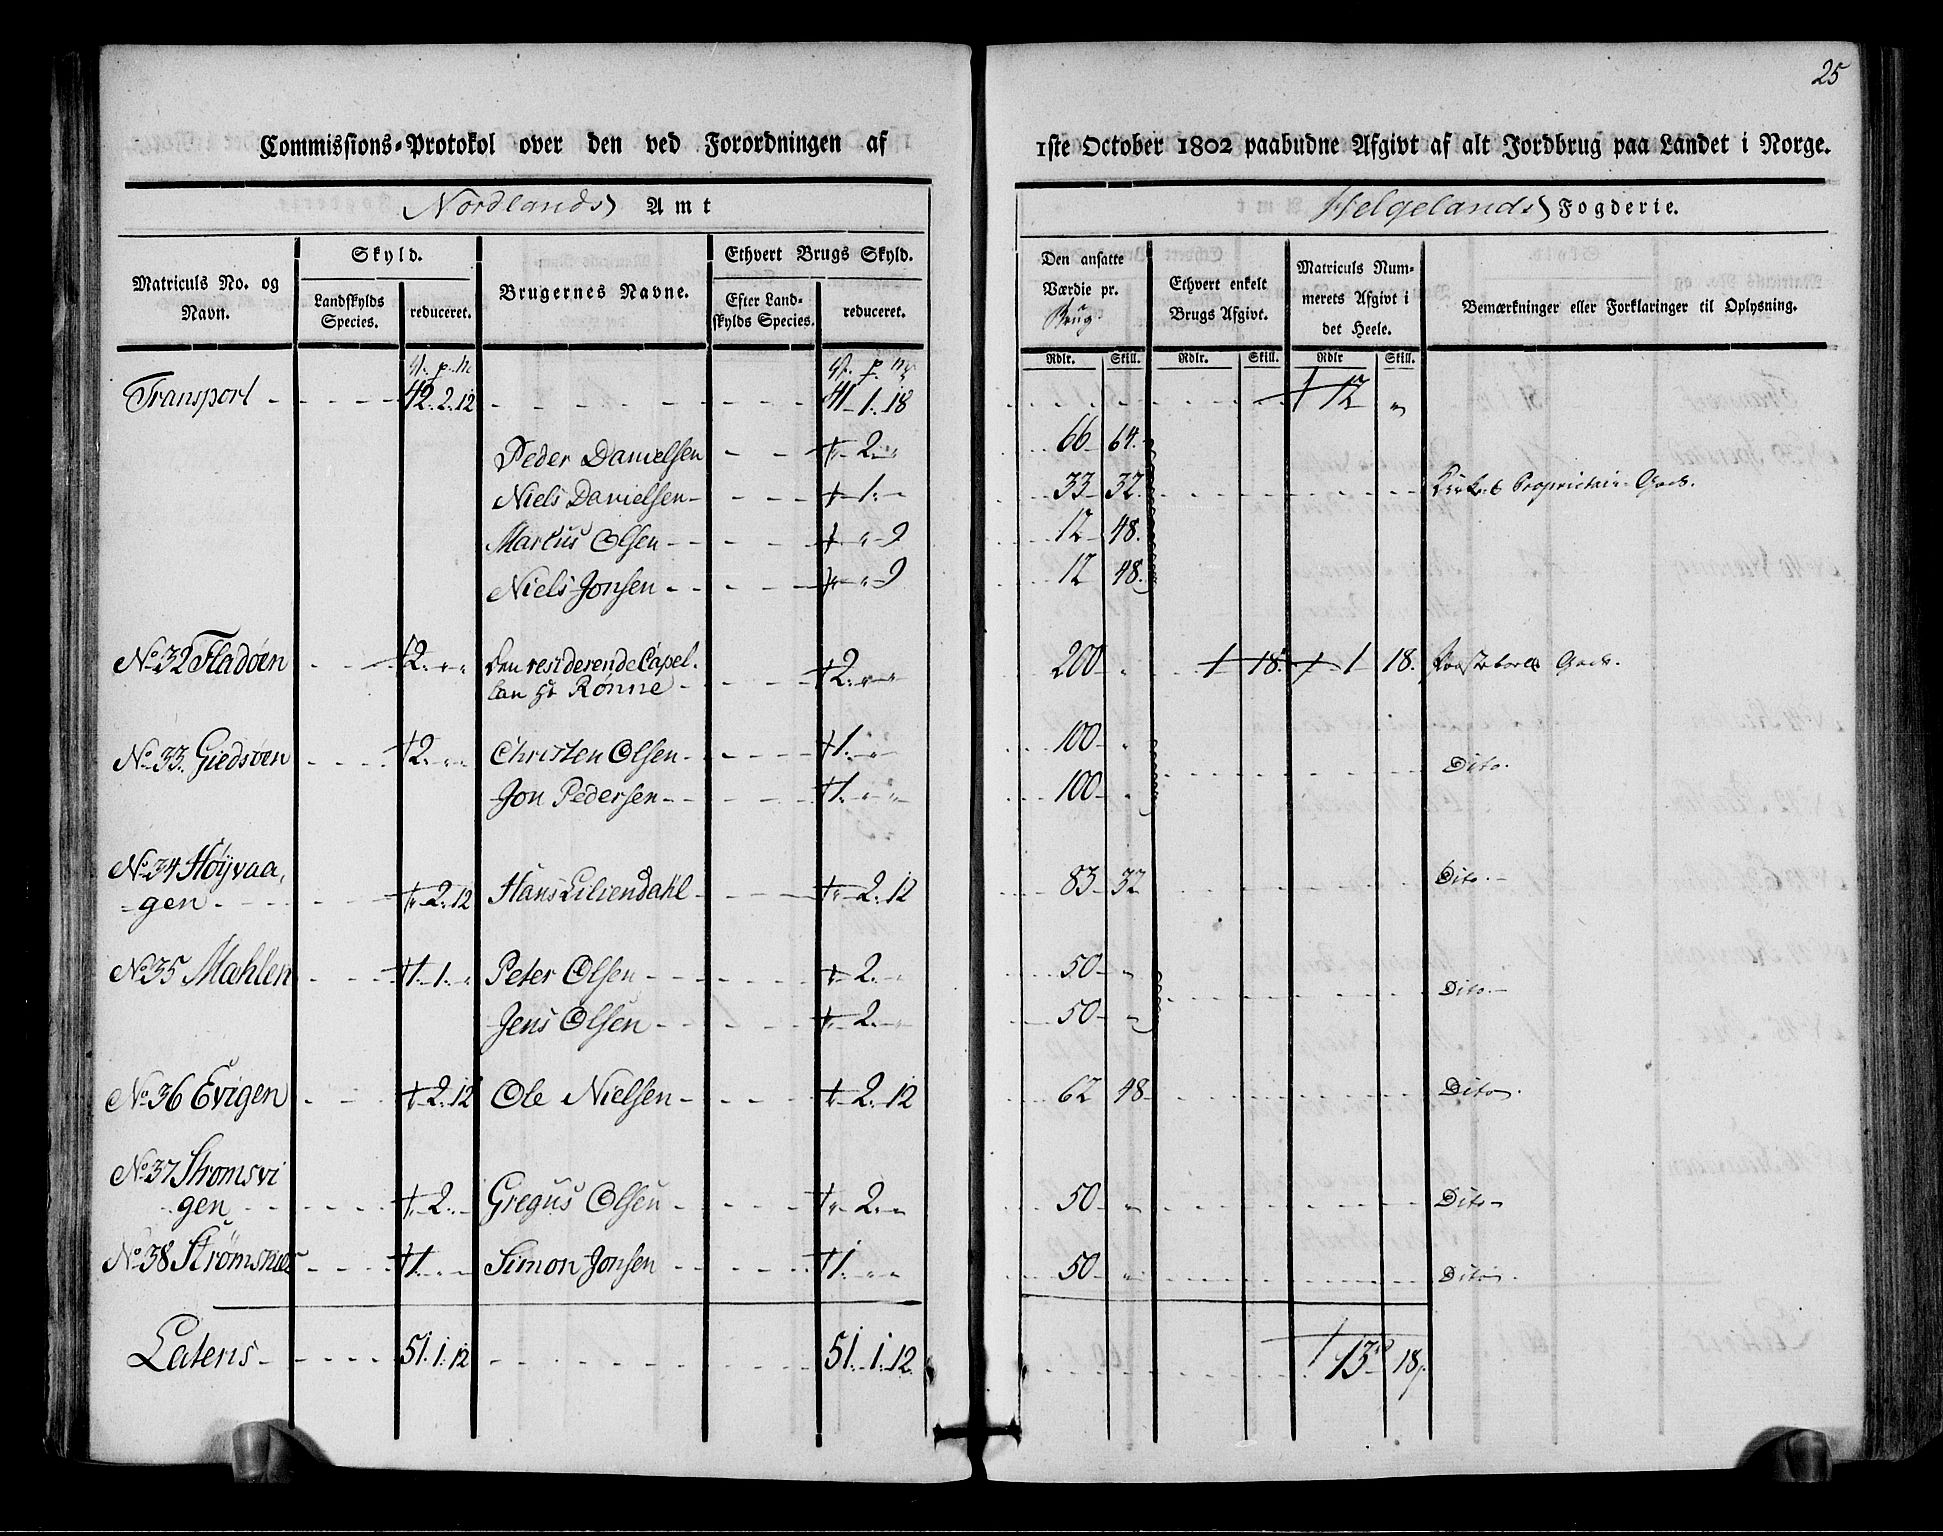 25
Commissions-Protokol over den ved Forordningen af 1ste October 1802 paabudne Afgivt af alt Jordbrug paa Landet i Norge.
Nordlands Amt
Helgelands Fogderie.
Matriculs No. og Navn.
Skyld.
Landskylds Species.
reduceret.
Brugernes Navne.
Ethvert Brugs Skyld.
Efter Landskylds Species.
reduceret.
Den ansatte Værdie pr. Brug.
Ethvert enkelt Brugs Afgivt.
Matriculs Nummerets Afgivt i det Heele.
Bemærkninger eller Forklaringer til Oplysning.
Rdlr. Skill. Rdlr. Skill. Rdlr Skill.
Transport 42. 2. 12 41. 1. 18 12 "
Peder Danielsen 2. " 66 64.
Niels Danielsen 1. " 33 32. Proprietair Gods.
Markus Olsen " 9 12 48.
Niels Jonsen " 9 12 48.
No. 32 Fladøen 2. " " Den residerende Capel-
lan Hr Rønne 2. " " 200 " 1 18. 1 18. Gods.
No. 33. Giedsøen 2. " " Christen Olsen 1. " " 100 "
Dito.
Jon Pedersen 1. " " 100 "
No. 34 Høÿvaa-
gen 2. 12 Hans Liliendahl 2. 12 83 32 Dito.
No. 35 Mæhlen 1. 1. " Peter Olsen 2. " 50 "
Dito.
Jens Olsen 2. " 50 "
No. 36 Evigen 2. 12 Ole Nielsen 2. 12 62 48 Dito.
No. 37 Strømsvi
gen 2. " Gregus Olsen 2. " 50 " Dito
No. 38 Strømsnæs 1. " " Simon Jonsen 1. " " 50 " Dito.
Lateris 51. 1. 12 51. 1. 12. 13 18